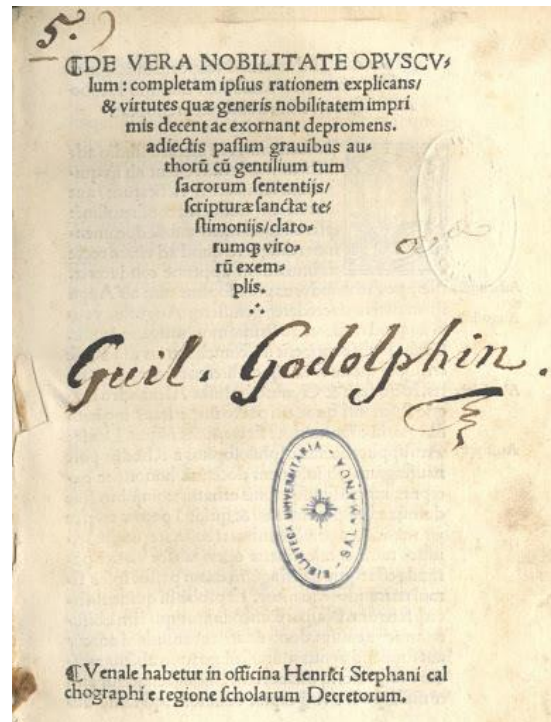 5.)
⁋DE VERA NOBILITATE OPVSCV⸗
lum : completam ipſius rationem explicans/
& virtutes quæ generis nobilitatem impri
mis decent ac exornant depromens.
adiectis paſſim grauibus au⸗
thorū cū gentilium tum
ſacrorum ſententijs/
ſcripturæ ſanctæ te⸗
ſtimonijs/claro⸗
rumqꝫ viro⸗
rū exem⸗
plis.
Guil. Godolphin.
BIBLIOTECA UNIVERSITARIA - SALAMANCA -
⁋Venale habetur in officina Henrici Stephani cal
chographi e regione ſcholarum Decretorum.